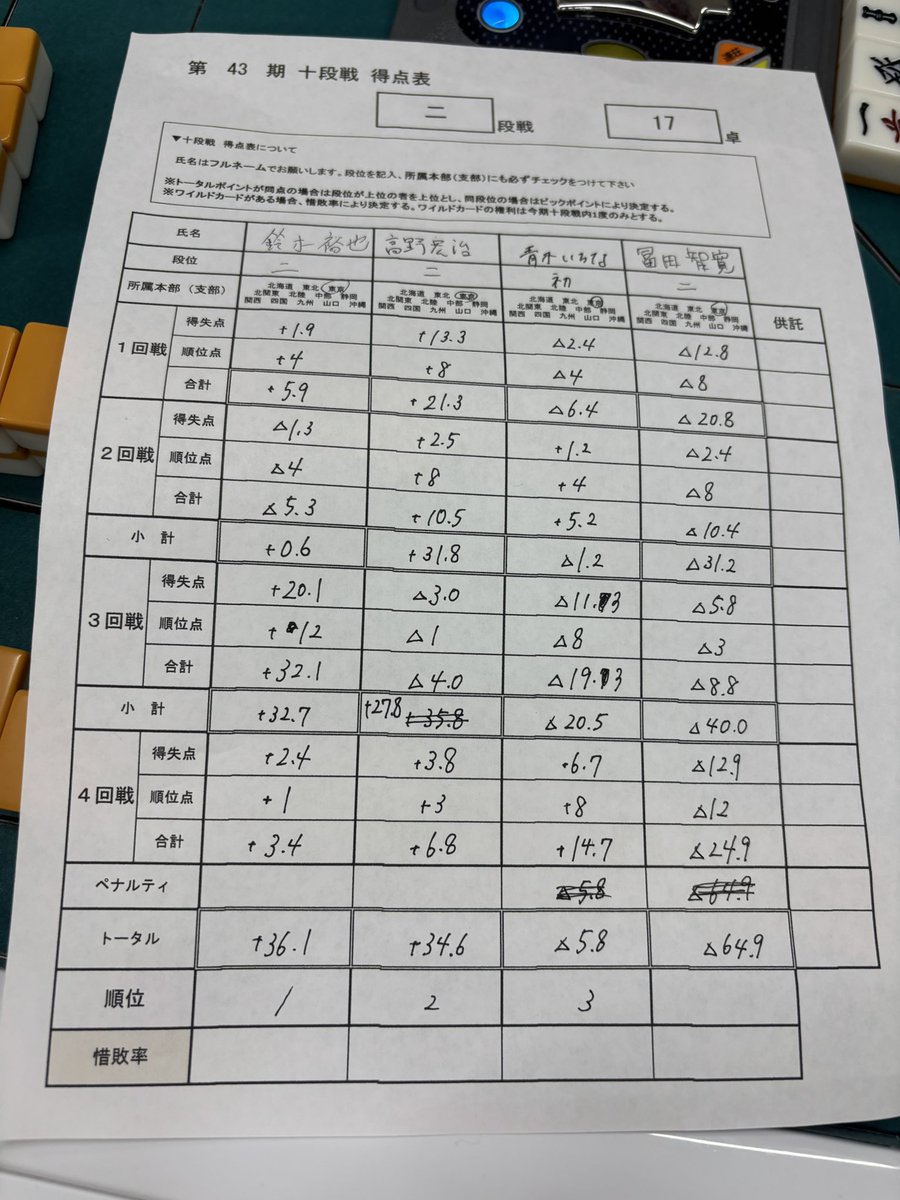 第 43 期 十段戦 得点表
二 段戦 17 卓
▼十段戦 得点表について
氏名はフルネームでお願いします。段位を記入、所属本部(支部)にも必ずチェックをつけて下さい
※トータルポイントが同点の場合は段位が上位の者を上位とし、同段位の場合はビックポイントにより決定する。
※ワイルドカードがある場合、惜敗率により決定する。ワイルドカードの権利は今期十段戦内1度のみとする。
氏名 鈴木裕也 高野宏治 青木いちな 冨田智寛
段位 二 二 初 二
所属本部(支部) 北海道 東北 東京 北海道 東北 東京 北海道 東北 東京 北海道 東北 東京 供託
北関東 北陸 中部 静岡 北関東 北陸 中部 静岡 北関東 北陸 中部 静岡 北関東 北陸 中部 静岡
関西 四国 九州 山口 沖縄 関西 四国 九州 山口 沖縄 関西 四国 九州 山口 沖縄 関西 四国 九州 山口 沖縄
1回戦
得失点 +1.9 +13.3 △2.4 △12.8
順位点 +4 +8 △4 △8
合計 +5.9 +21.3 △6.4 △20.8
2回戦
得失点 △1.3 +2.5 +1.2 △2.4
順位点 △4 +8 +4 △8
合計 △5.3 +10.5 +5.2 △10.4
小 計 +0.6 +31.8 △1.2 △31.2
3回戦
得失点 +20.1 △3.0 △11.3 △5.8
順位点 +12 △1 △8 △3
合計 +32.1 △4.0 △19.3 △8.8
小 計 +32.7 +27.8 +35.8 △20.5 △40.0
4回戦
得失点 +2.4 +3.8 +6.7 △12.9
順位点 +1 +3 +8 △12
合計 +3.4 +6.8 +14.7 △24.9
ペナルティ △5.8 △64.9
トータル +36.1 +34.6 △5.8 △64.9
順位 1 2 3
惜敗率